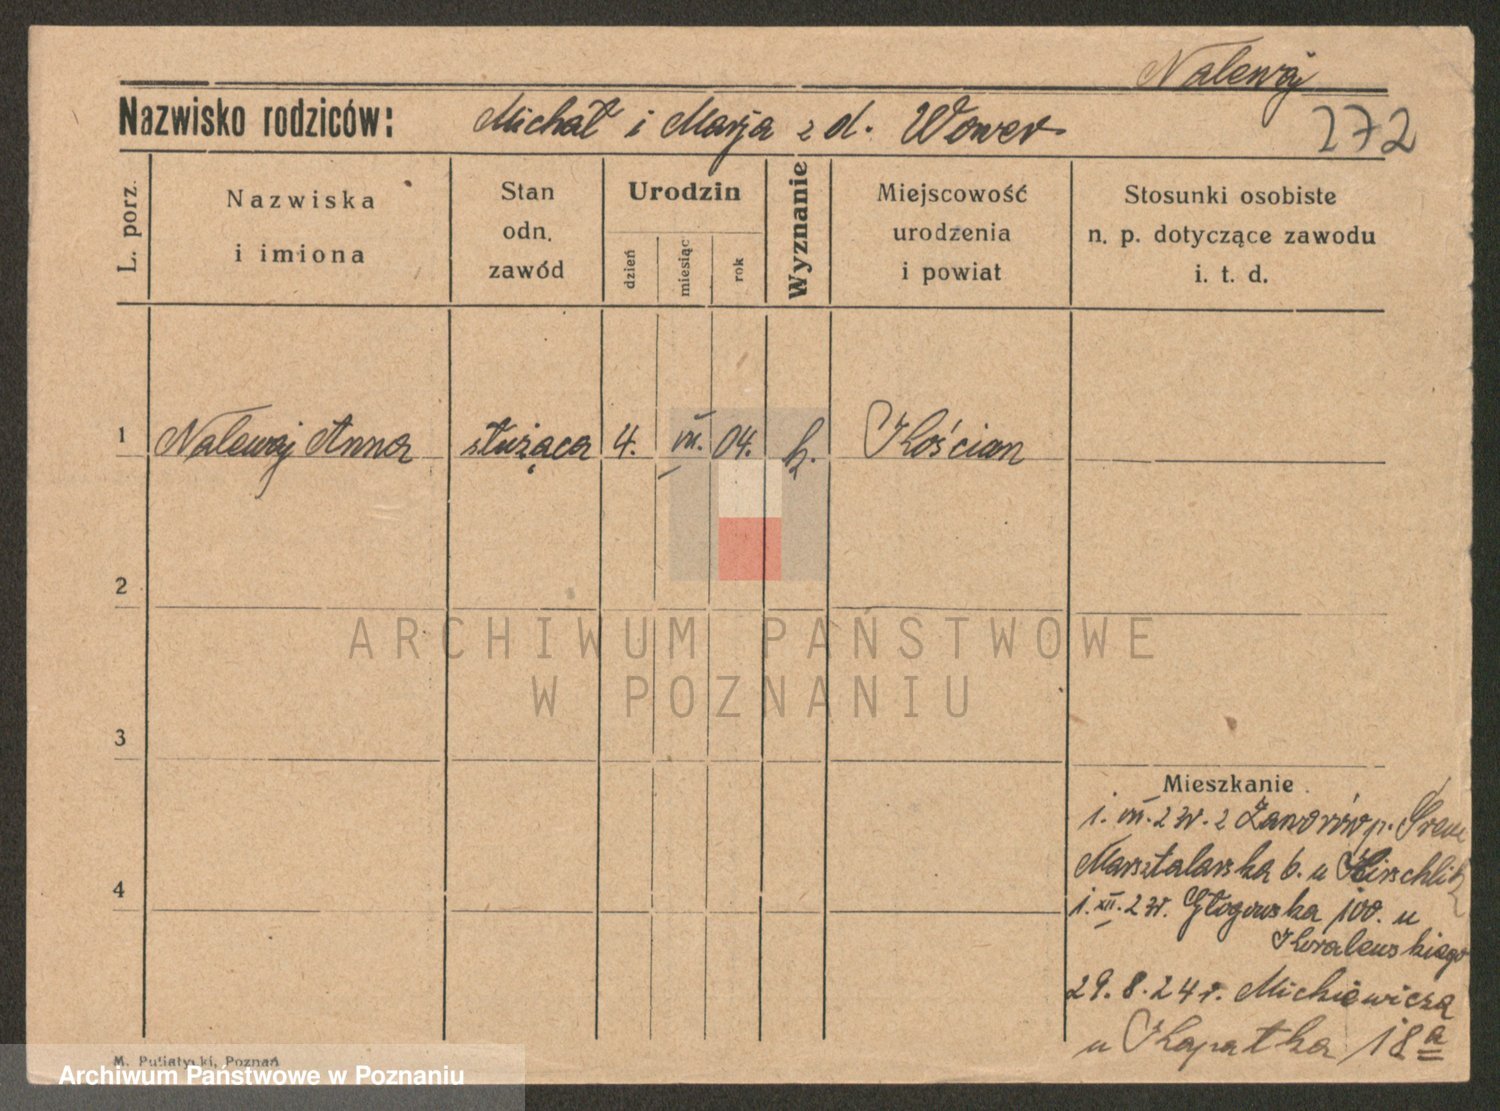 Nalewaj
Nazwisko rodziców: Michał i Marja z d. Wower
272
L. porz.
Nazwiska
i imiona
Stan
odn.
zawód
Urodzin
dzień
miesiąc
rok
Wyznanie
Miejscowość
urodzenia
i powiat
Stosunki osobiste
n. p. dotyczące zawodu
i. t. d.
1 Nalewaj Anna służąca 4. VII. 04. k. Kościan
2
ARCHIWUM PAŃSTWOWE
W POZNANIU
3
Mieszkanie
1. VII. 23r. z p. Śrem
4
Marsztalarska 6. u Hirschlik
1. XII. 23r. Głogowska 100. u
Koralewskiego
29. 8. 24r. Mickiewicza
u Kapatka 18a
M. Putiatycki, Poznań
Archiwum Państwowe w Poznaniu